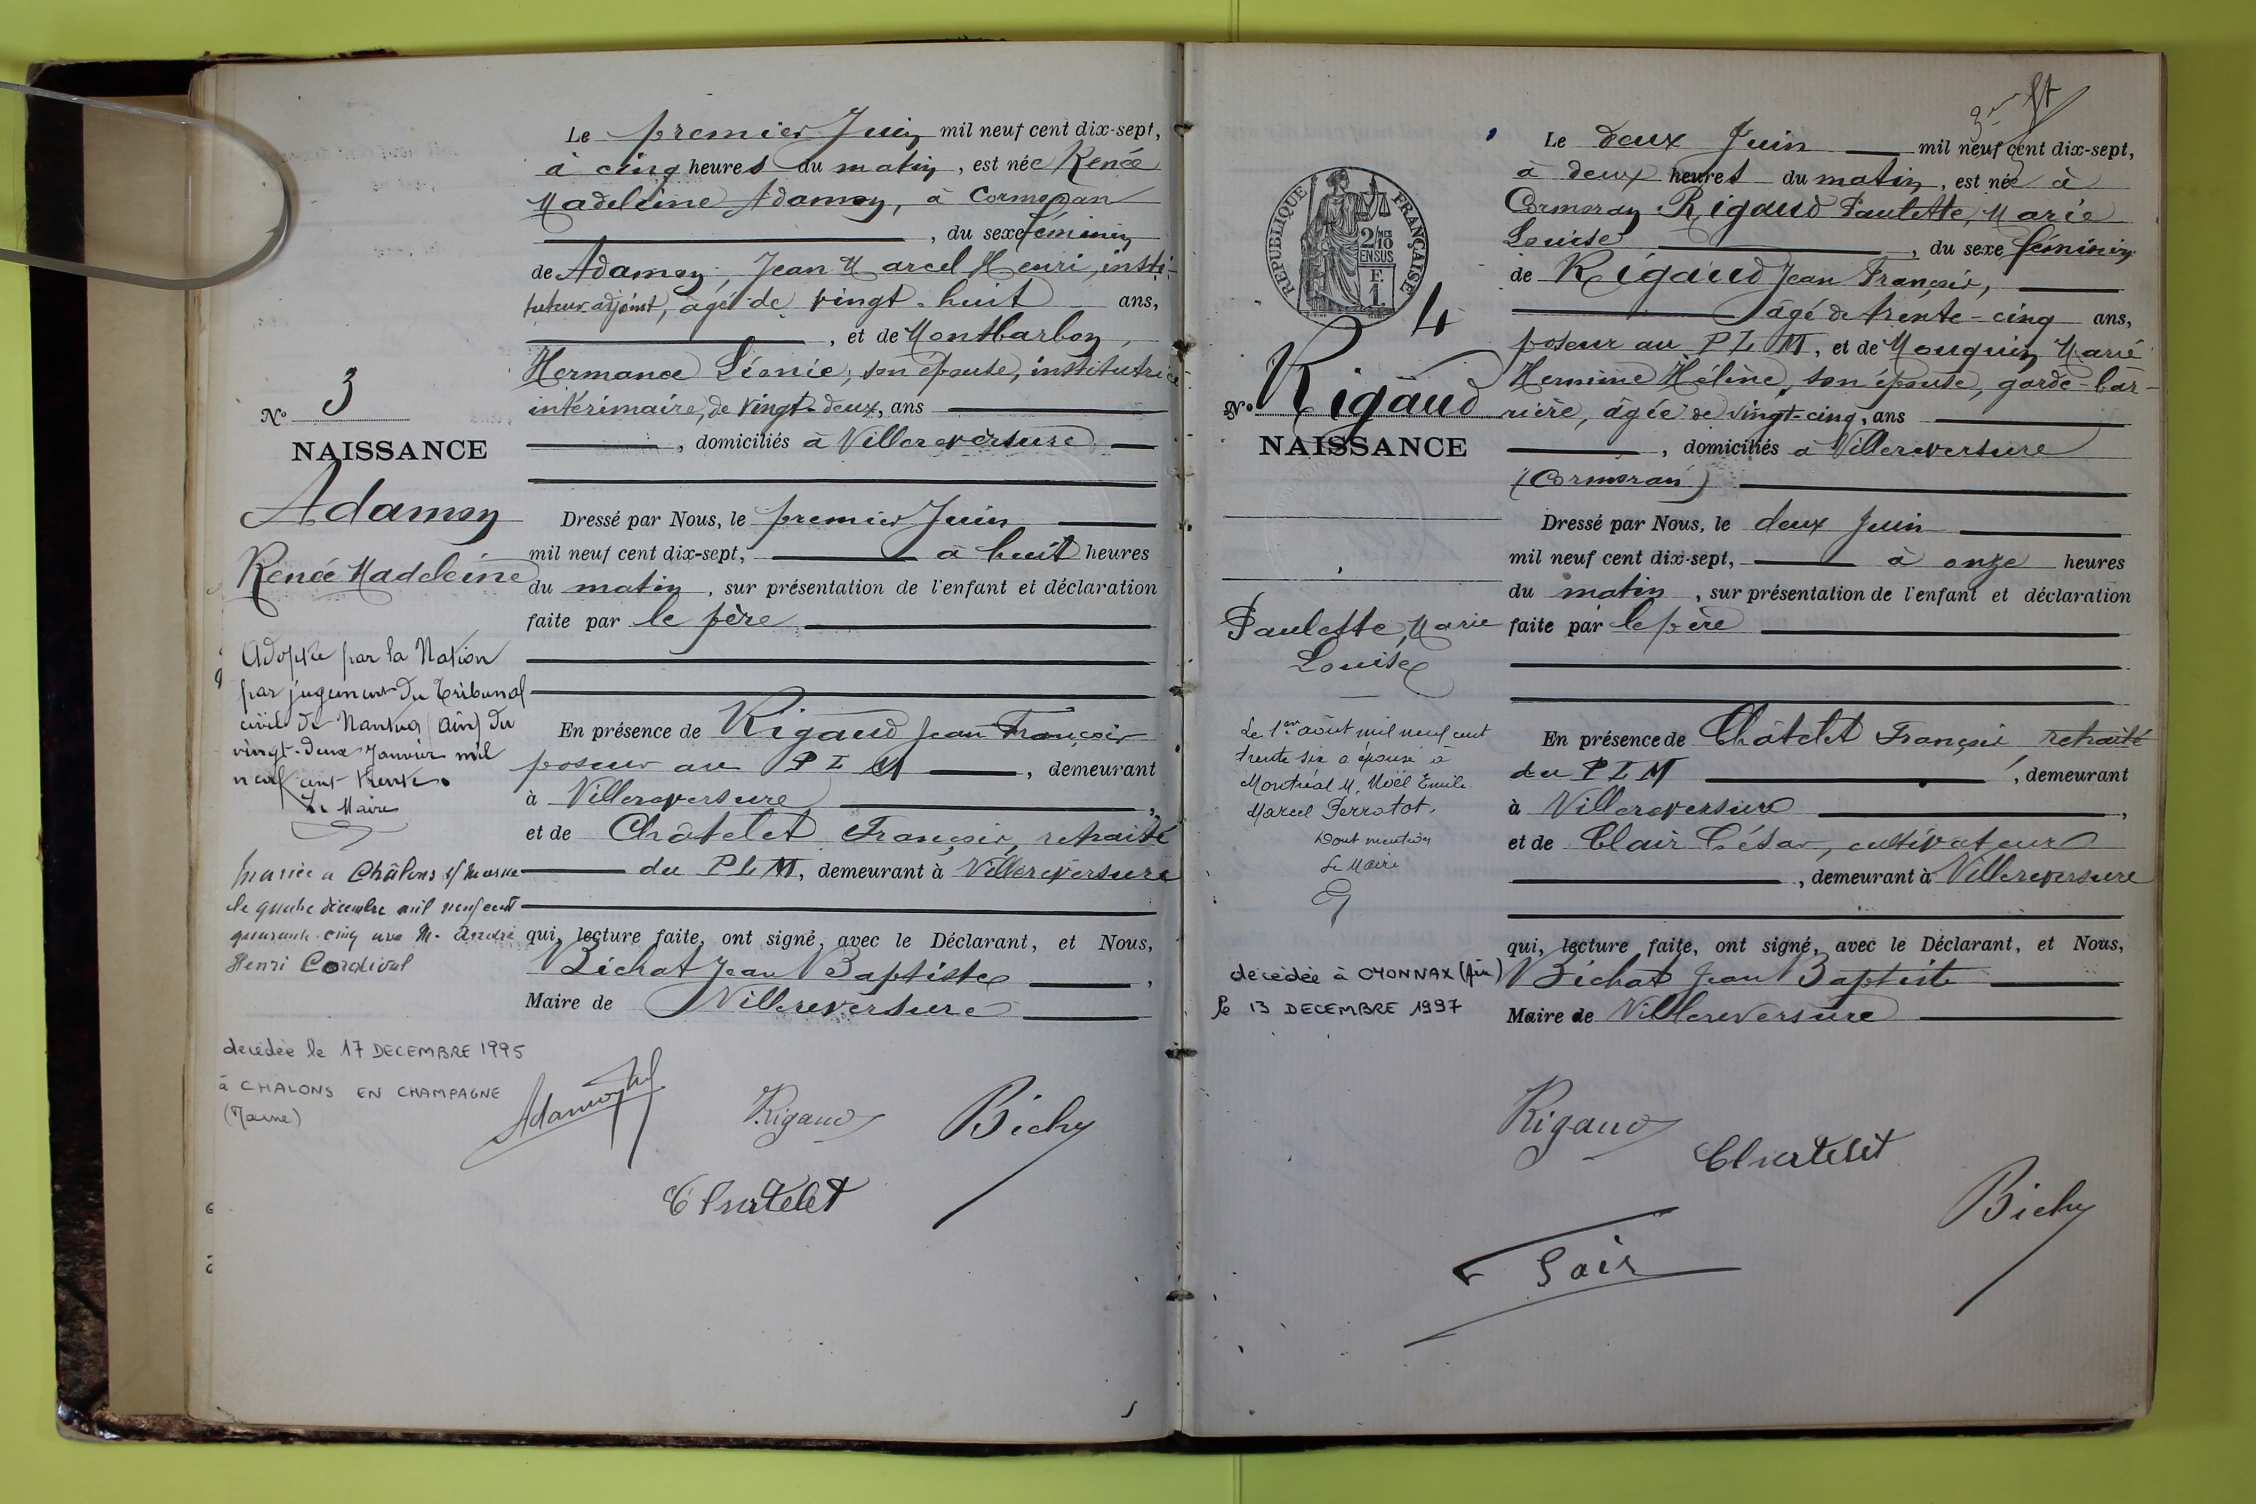 Le premier Juin mil neuf cent dix-sept,
à cinq heures du matin, est née Renée
Madeleine Adamoy, à Cormoran
, du sexe féminin
de Adamoy, Jean Marcel Henri, insti-
tuteur adjoint, âgé de vingt-huit ans,
, et de Montbarbon,
Hermance Léonie, son épouse, institutrice
intérimaire, de vingt-deux, ans
, domiciliés à Villereversure
N° 3
NAISSANCE
Adamoy
Renée Madeleine
Dressé par Nous, le premier Juin
mil neuf cent dix-sept, à huit heures
du matin, sur présentation de l'enfant et déclaration
faite par le père
Adoptée par la Nation
par jugement du Tribunal
civil de Nantua (Ain) du
vingt-deux Janvier mil
neuf cent trente.
Le Maire
En présence de Rigaud Jean François
poseur au P L M, demeurant
à Villereversure,
et de Châtelet François, retraité
du P L M, demeurant à Villereversure
mariée à Châlons s/ Marne
le quatre décembre mil neuf cent
quarante-cinq avec M. André
Henri Cordival
qui, lecture faite, ont signé, avec le Déclarant, et Nous,
Bichat Jean Baptiste,
Maire de Villereversure
décédée le 17 DECEMBRE 1995
à CHALONS EN CHAMPAGNE
(Marne)
Rigaud
Bichat
Chatelet
3
Le deux Juin mil neuf cent dix-sept,
à deux heures du matin, est née à
Cormoran Rigaud Paulette, Marie
Louise, du sexe féminin
de Rigaud Jean François,
âgé de trente-cinq ans,
poseur au P L M, et de Mouquin Marie
Hermine Hélène, son épouse, garde-bar-
rière, âgée de vingt-cinq, ans
, domiciliés à Villereversure
(Cormoran)
REPUBLIQUE FRANÇAISE
2/10 MES
EN SUS
F.
1.
4
N° Rigaud
NAISSANCE
Paulette, Marie
Louise
Dressé par Nous, le deux Juin
mil neuf cent dix-sept, à onze heures
du matin, sur présentation de l'enfant et déclaration
faite par le père
Le 1er août mil neuf cent
trente six a épousé à
Montréal M. Noël Emile
Marcel Perrotot.
Dont mention
Le Maire
En présence de Châtelet François retraité
du P L M, demeurant
à Villereversure,
et de Clair César, cultivateur
, demeurant à Villereversure
qui, lecture faite, ont signé, avec le Déclarant, et Nous,
Bichat Jean Baptiste
Maire de Villereversure
décédée à OYONNAX (Ain)
le 13 DECEMBRE 1997
Rigaud
Chatelet
Bichat